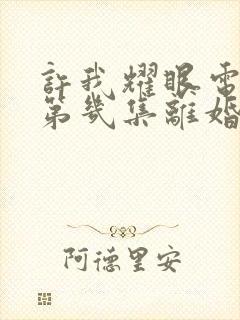 許我耀眼電
第幾集離婚
阿德里安